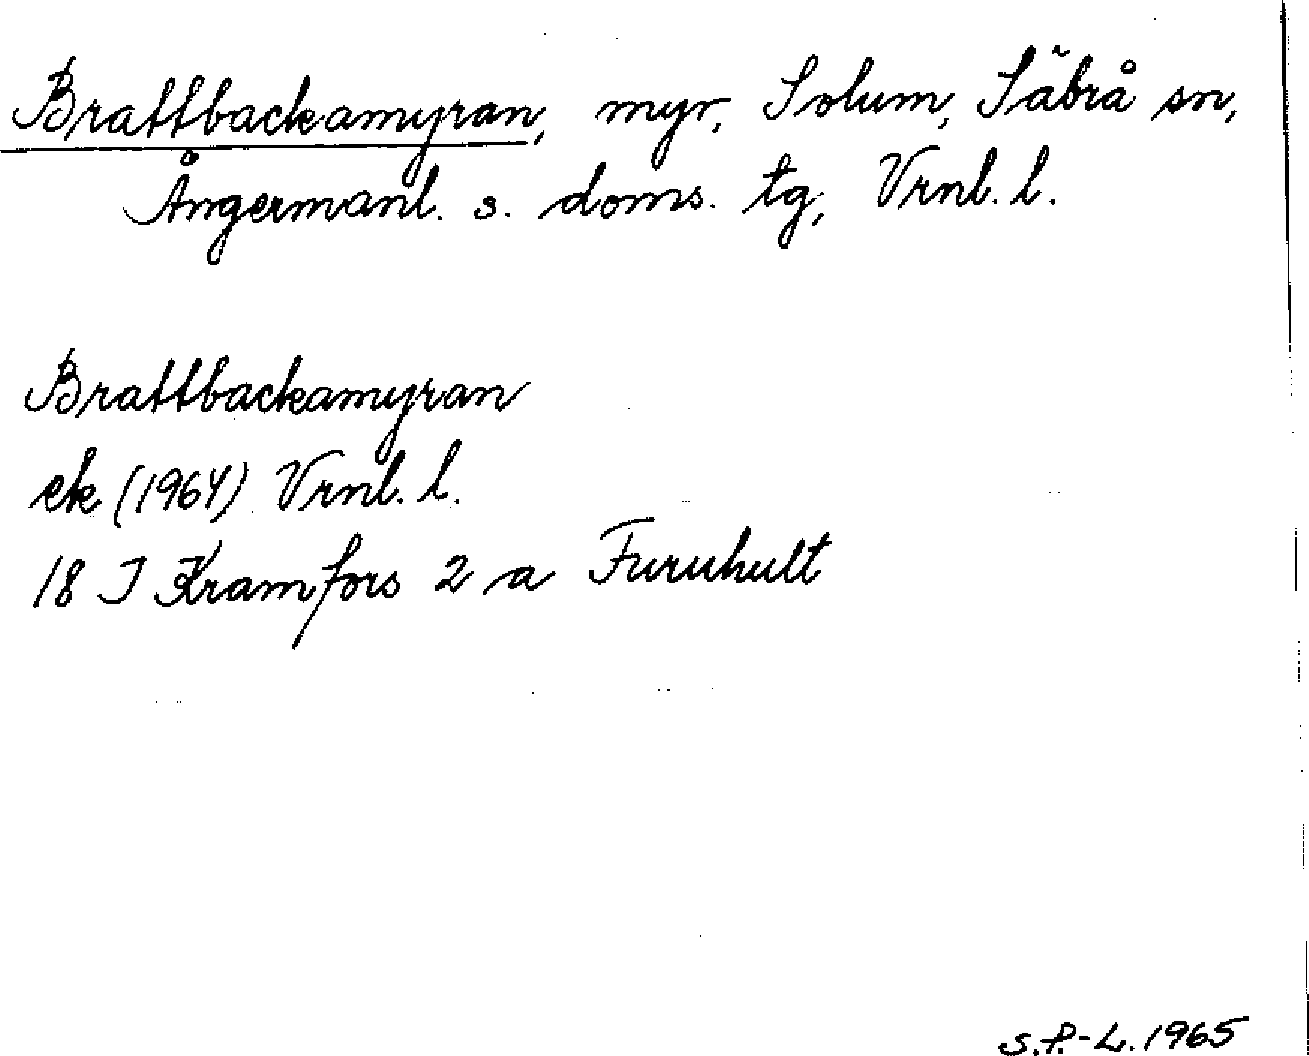 Brattbackamyran, myr, Solum, Säbrå sn,
Ångermanl. s. doms. tg, Vrnl. l.
Brattbackamyran
ek (1964) Vrnl. l.
18 I Kramfors 2 a Furuhult
S.P.-L. 1965